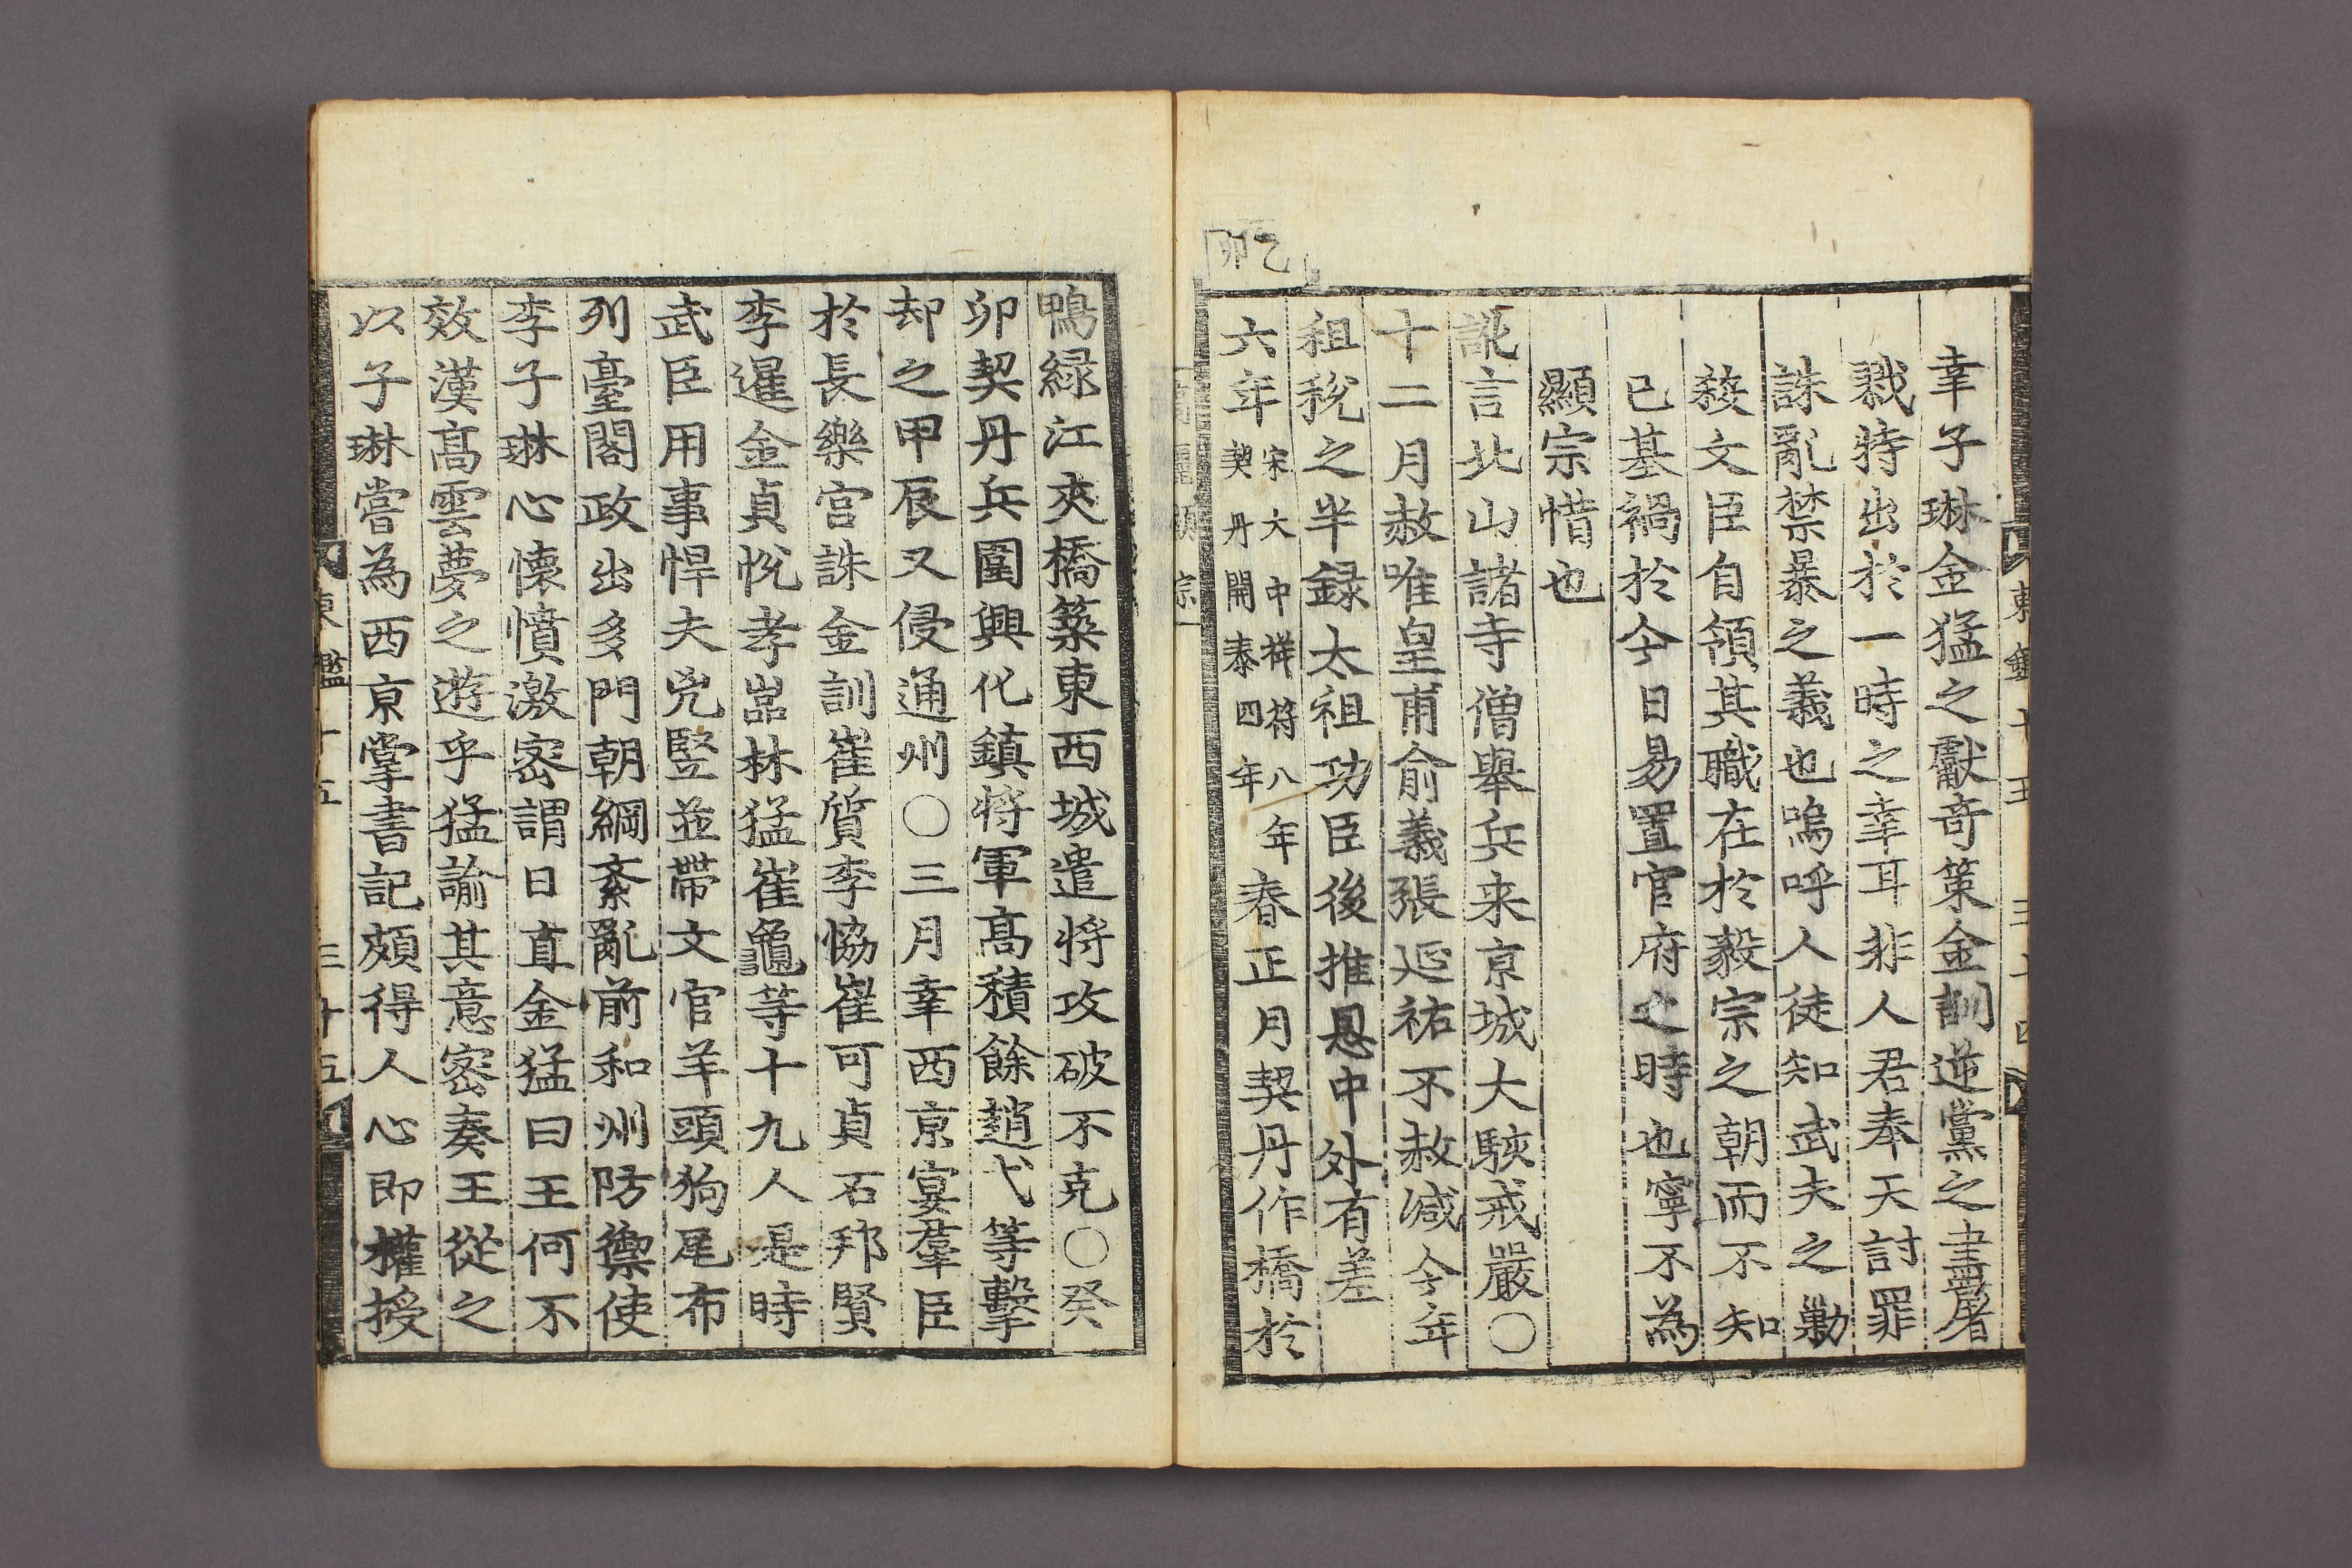 幸子琳金猛之獻奇策金訓逆黨之盡屠
戮特出於一時之幸耳非人君奉天討罪
誅亂禁暴之義也嗚呼人徒知武夫之勦
殺文臣自領其職在於毅宗之朝而不知
已基禍於今日易置官府之時也寧不為
顯宗惜也
訛言北山諸寺僧舉兵来京城大駭戒嚴○
十二月赦唯皇甫俞義張延祐不赦減今年
租稅之半録太祖功臣後推恩中外有差
乙卯
六年宋大中祥符八年契丹開泰四年春正月契丹作橋於
東鑑十五
三十四
鴨緑江夾橋築東西城遣將攻破不克○癸
卯契丹兵圍興化鎮將軍高積餘趙弋等擊
却之甲辰又侵通州○三月幸西京宴羣臣
於長樂宫誅金訓崔質李恊崔可貞石邦賢
李暹金貞恱孝嵓林猛崔龜等十九人是時
武臣用事悍夫兇竪並帶文官羊頭狗尾布
列臺閣政出多門朝綱紊亂前和州防禦使
李子琳心懷憤激密謂日直金猛曰王何不
效漢高雲夢之遊乎猛諭其意密奏王從之
以子琳嘗為西京掌書記頗得人心即權授
東鑑十五
三十五